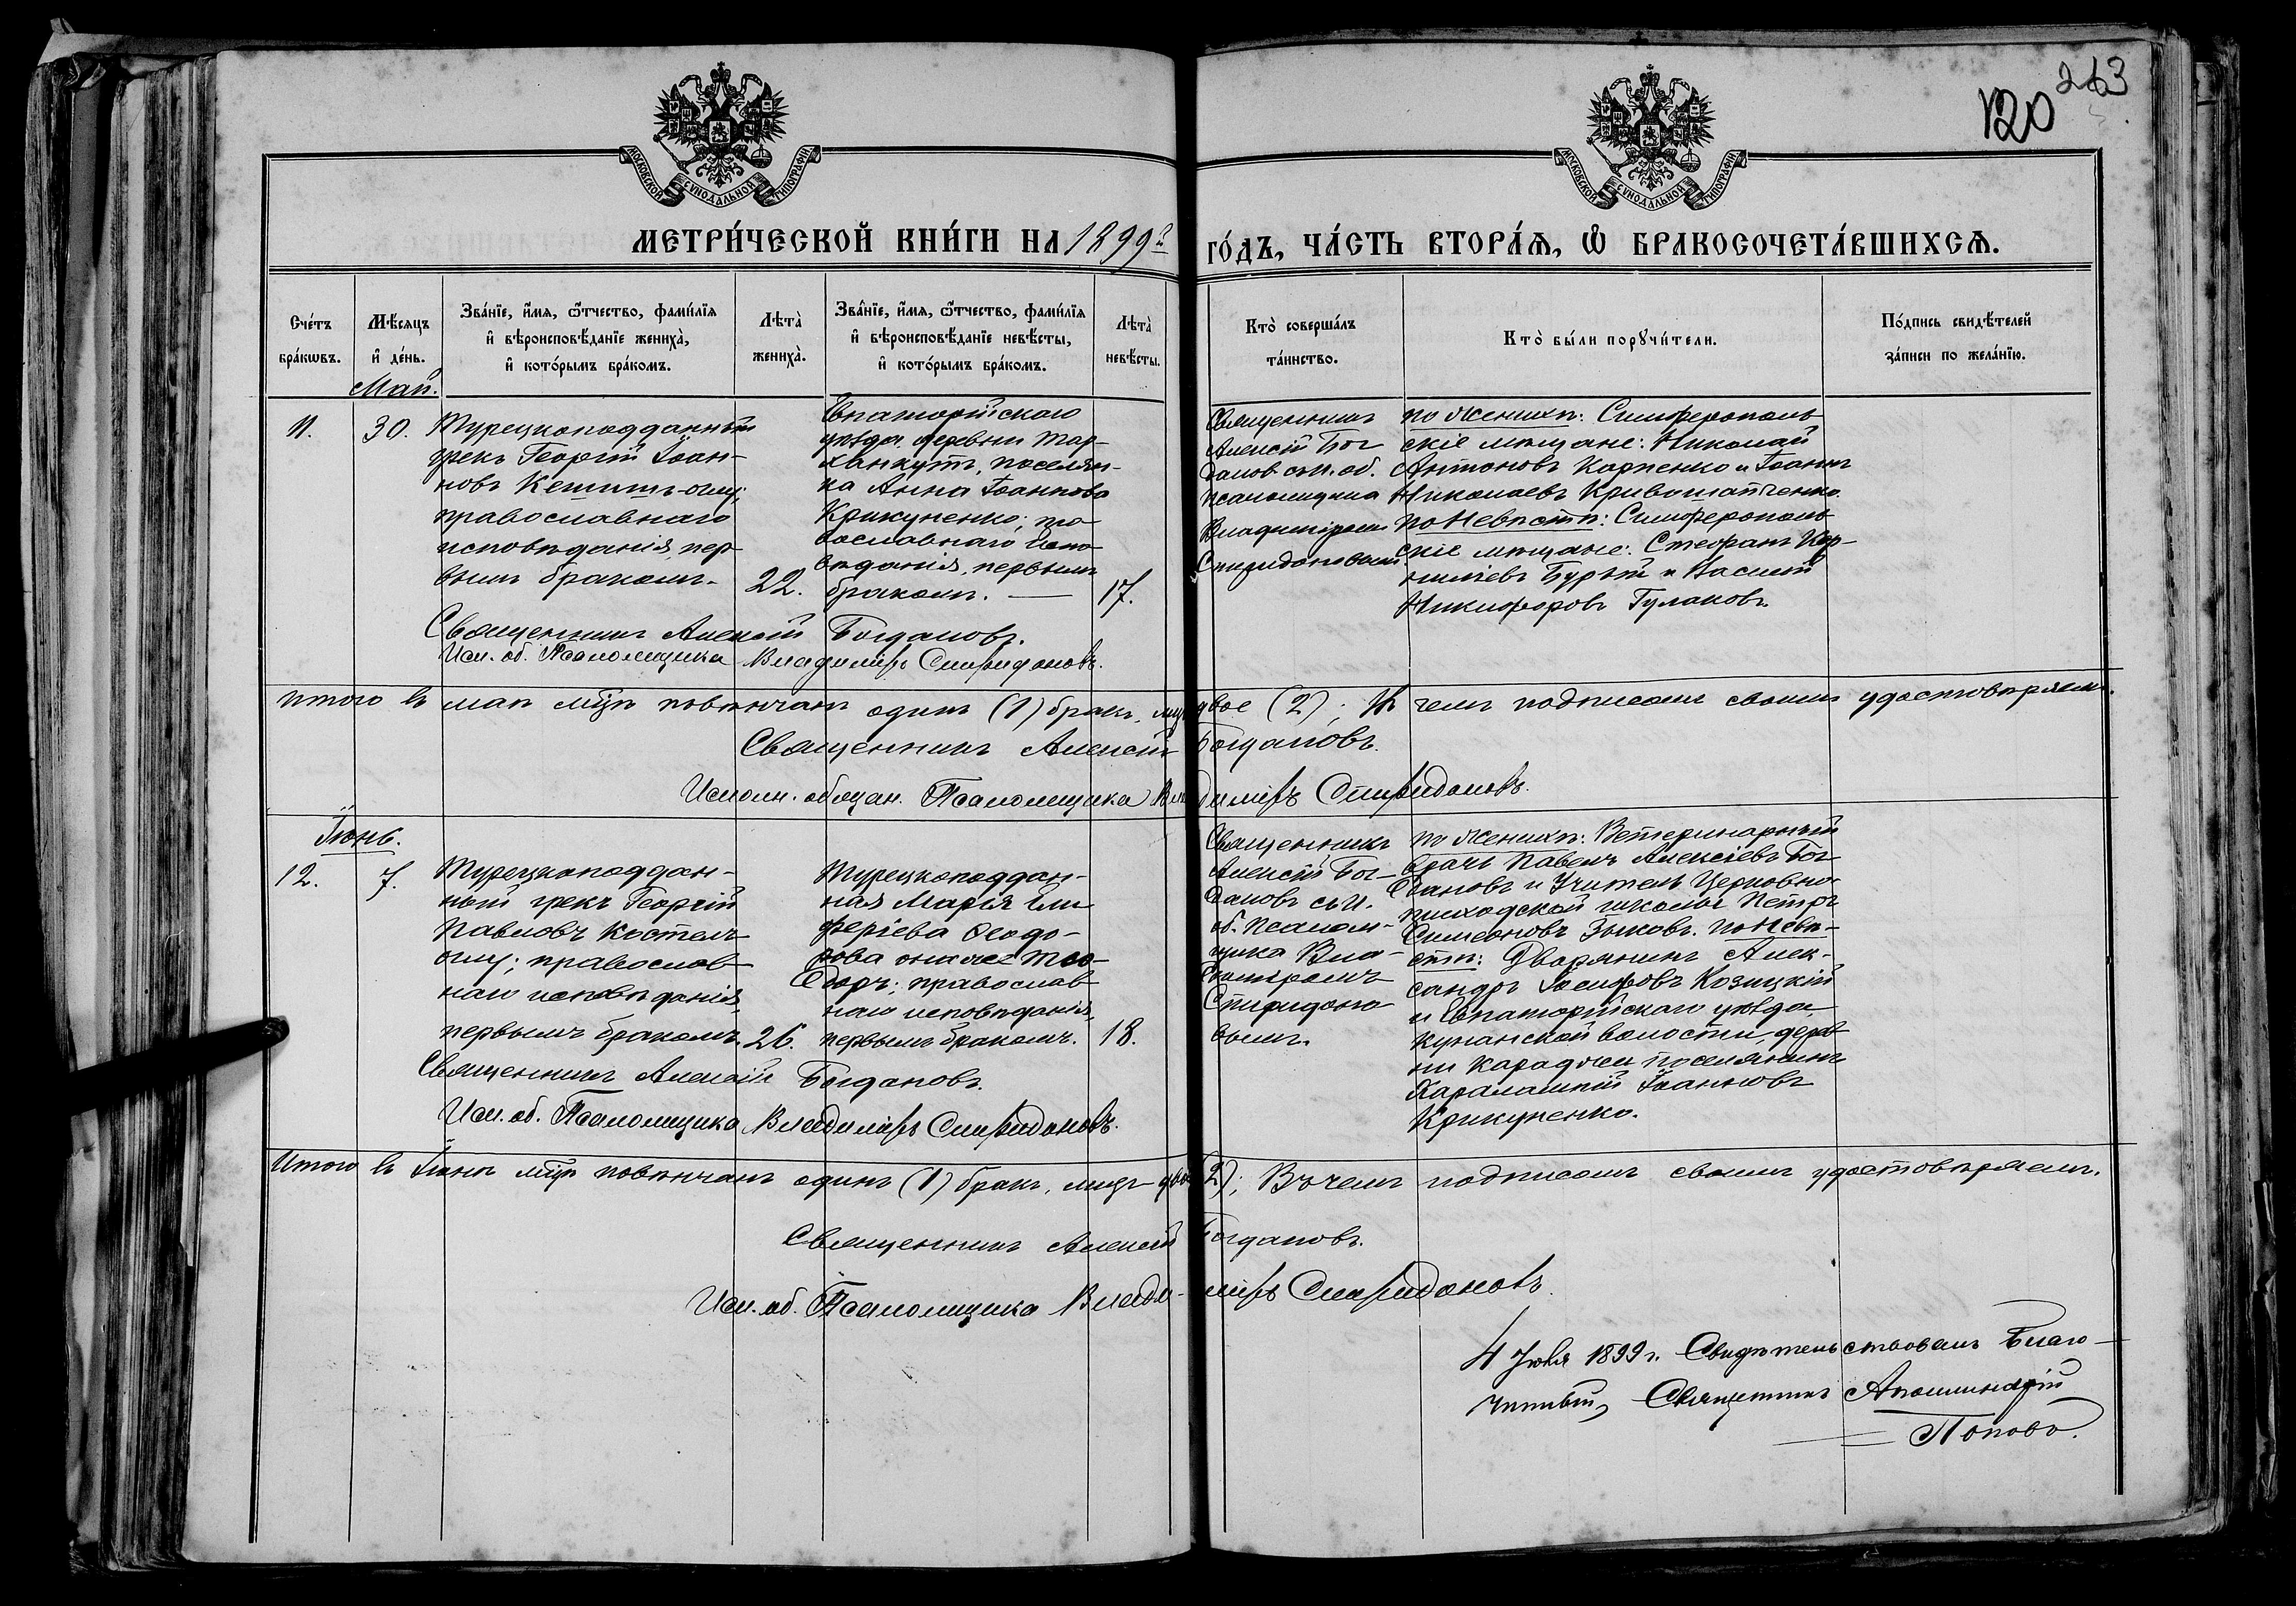 263
120
МОСКОВСКОЙ СѴНОДАЛЬНОЙ ТИПОГРАФІИ
МОСКОВСКОЙ СѴНОДАЛЬНОЙ ТИПОГРАФІИ
МЕТРИ́ЧЕСКОЙ КНИ́ГИ НА 1899й
ГО́ДЪ, ЧА́СТЬ ВТОРА́Ѧ, Ѡ҆ БРАКОСОЧЕТА́ВШИХСѦ.
Сче́тъ
бра́кѡвъ.
Мѣ́сяцъ
и҆ де́нь.
Зва́нїе, и҆́мя, ѻ҆́тчество, фами́лїя
и҆ вѣроисповѣ́данїе жениха̀,
и҆ кото́рымъ бра́комъ.
Лѣта̀
жениха̀.
Зва́нїе, и҆́мя, ѻ҆́тчество, фами́лїя
и҆ вѣроисповѣ́данїе невѣ́сты,
и҆ кото́рымъ бра́комъ.
Лѣта̀
невѣ́сты.
Кто̀ соверша́лъ
та́инство.
Кто̀ бы́ли порꙋчи́тели.
По́дпись свидѣ́телей
за́писи по жела́нїю.
Май.
11.
30.
Турецкоподданный
грекъ Георгій Іоан-
новъ
православнаго
исповѣданія, пер-
вымъ бракомъ.
22.
Евпаторійскаго
уѣзда, деревни Тар-
ханкутъ, поселян-
ка Анна Іоаннова
Крикуненко; пра-
вославнаго испо-
вѣданія, первымъ
бракомъ. —
17.
Священникъ
Алексій Бог-
дановъ съ и. об.
псаломщика
Владиміромъ
Спиридоновымъ
по женихѣ: Симферополь-
скіе мѣщане: Николай
Антоновъ Карпенко и Іоаннъ
Николаевъ Кривошапченко.
По невѣстѣ: Симферополь-
скіе мѣщане: Стефанъ Кор-
ниліевъ и Василій
Никифоровъ Гулаковъ.
Священникъ Алексій Богдановъ.
Исп. об. Псаломщика Владиміръ Спиридоновъ.
Итого въ маѣ мцѣ повѣнчанъ одинъ (1) бракъ, лицъ двое (2); въ чемъ подписомъ своимъ удостовѣряемъ.
Священникъ Алексій Богдановъ.
Исполн. обязан. Псаломщика Владиміръ Спиридоновъ.
Іюнь.
12.
7.
Турецкоподдан-
ный грекъ Георгій
Павловъ Костель-
оглу; православ-
наго исповѣданія,
первымъ бракомъ.
26.
Турецкоподдан-
ная Марія Ели-
феріева Ѳеодо-
рова она же Тео-
доръ; православ-
наго исповѣданія,
первымъ бракомъ.
18.
Священникъ
Алексій Бог-
дановъ съ и.
об. псалом-
щика Вла-
диміромъ
Спиридоно-
вымъ.
по женихѣ: Ветеринарный
врачъ Павелъ Алексіевъ Бог-
дановъ и Учитель Церковно-
приходской школы Петръ
Симеоновъ Зыковъ. По невѣ-
стѣ: Дворянинъ Алек-
сандръ Іосифовъ Козицкій
и Евпаторійскаго уѣзда,
Кунанской волости, дерев-
ни Караджи поселянинъ
Харалампій Іоанновъ
Крикуненко.
Священникъ Алексій Богдановъ.
Исп. об. Псаломщика Владиміръ Спиридоновъ.
Итого въ Іюнѣ мцѣ повѣнчанъ одинъ (1) бракъ, лицъ двое (2); Въ чемъ подписомъ своимъ удостовѣряемъ.
Священникъ Алексій Богдановъ.
Исп. об. Псаломщика Влади-міръ Спиридоновъ.
4 Іюля 1899 г. Свидѣтельствовалъ Благо-
чинный, Священникъ Аполлинарій
Поповъ.